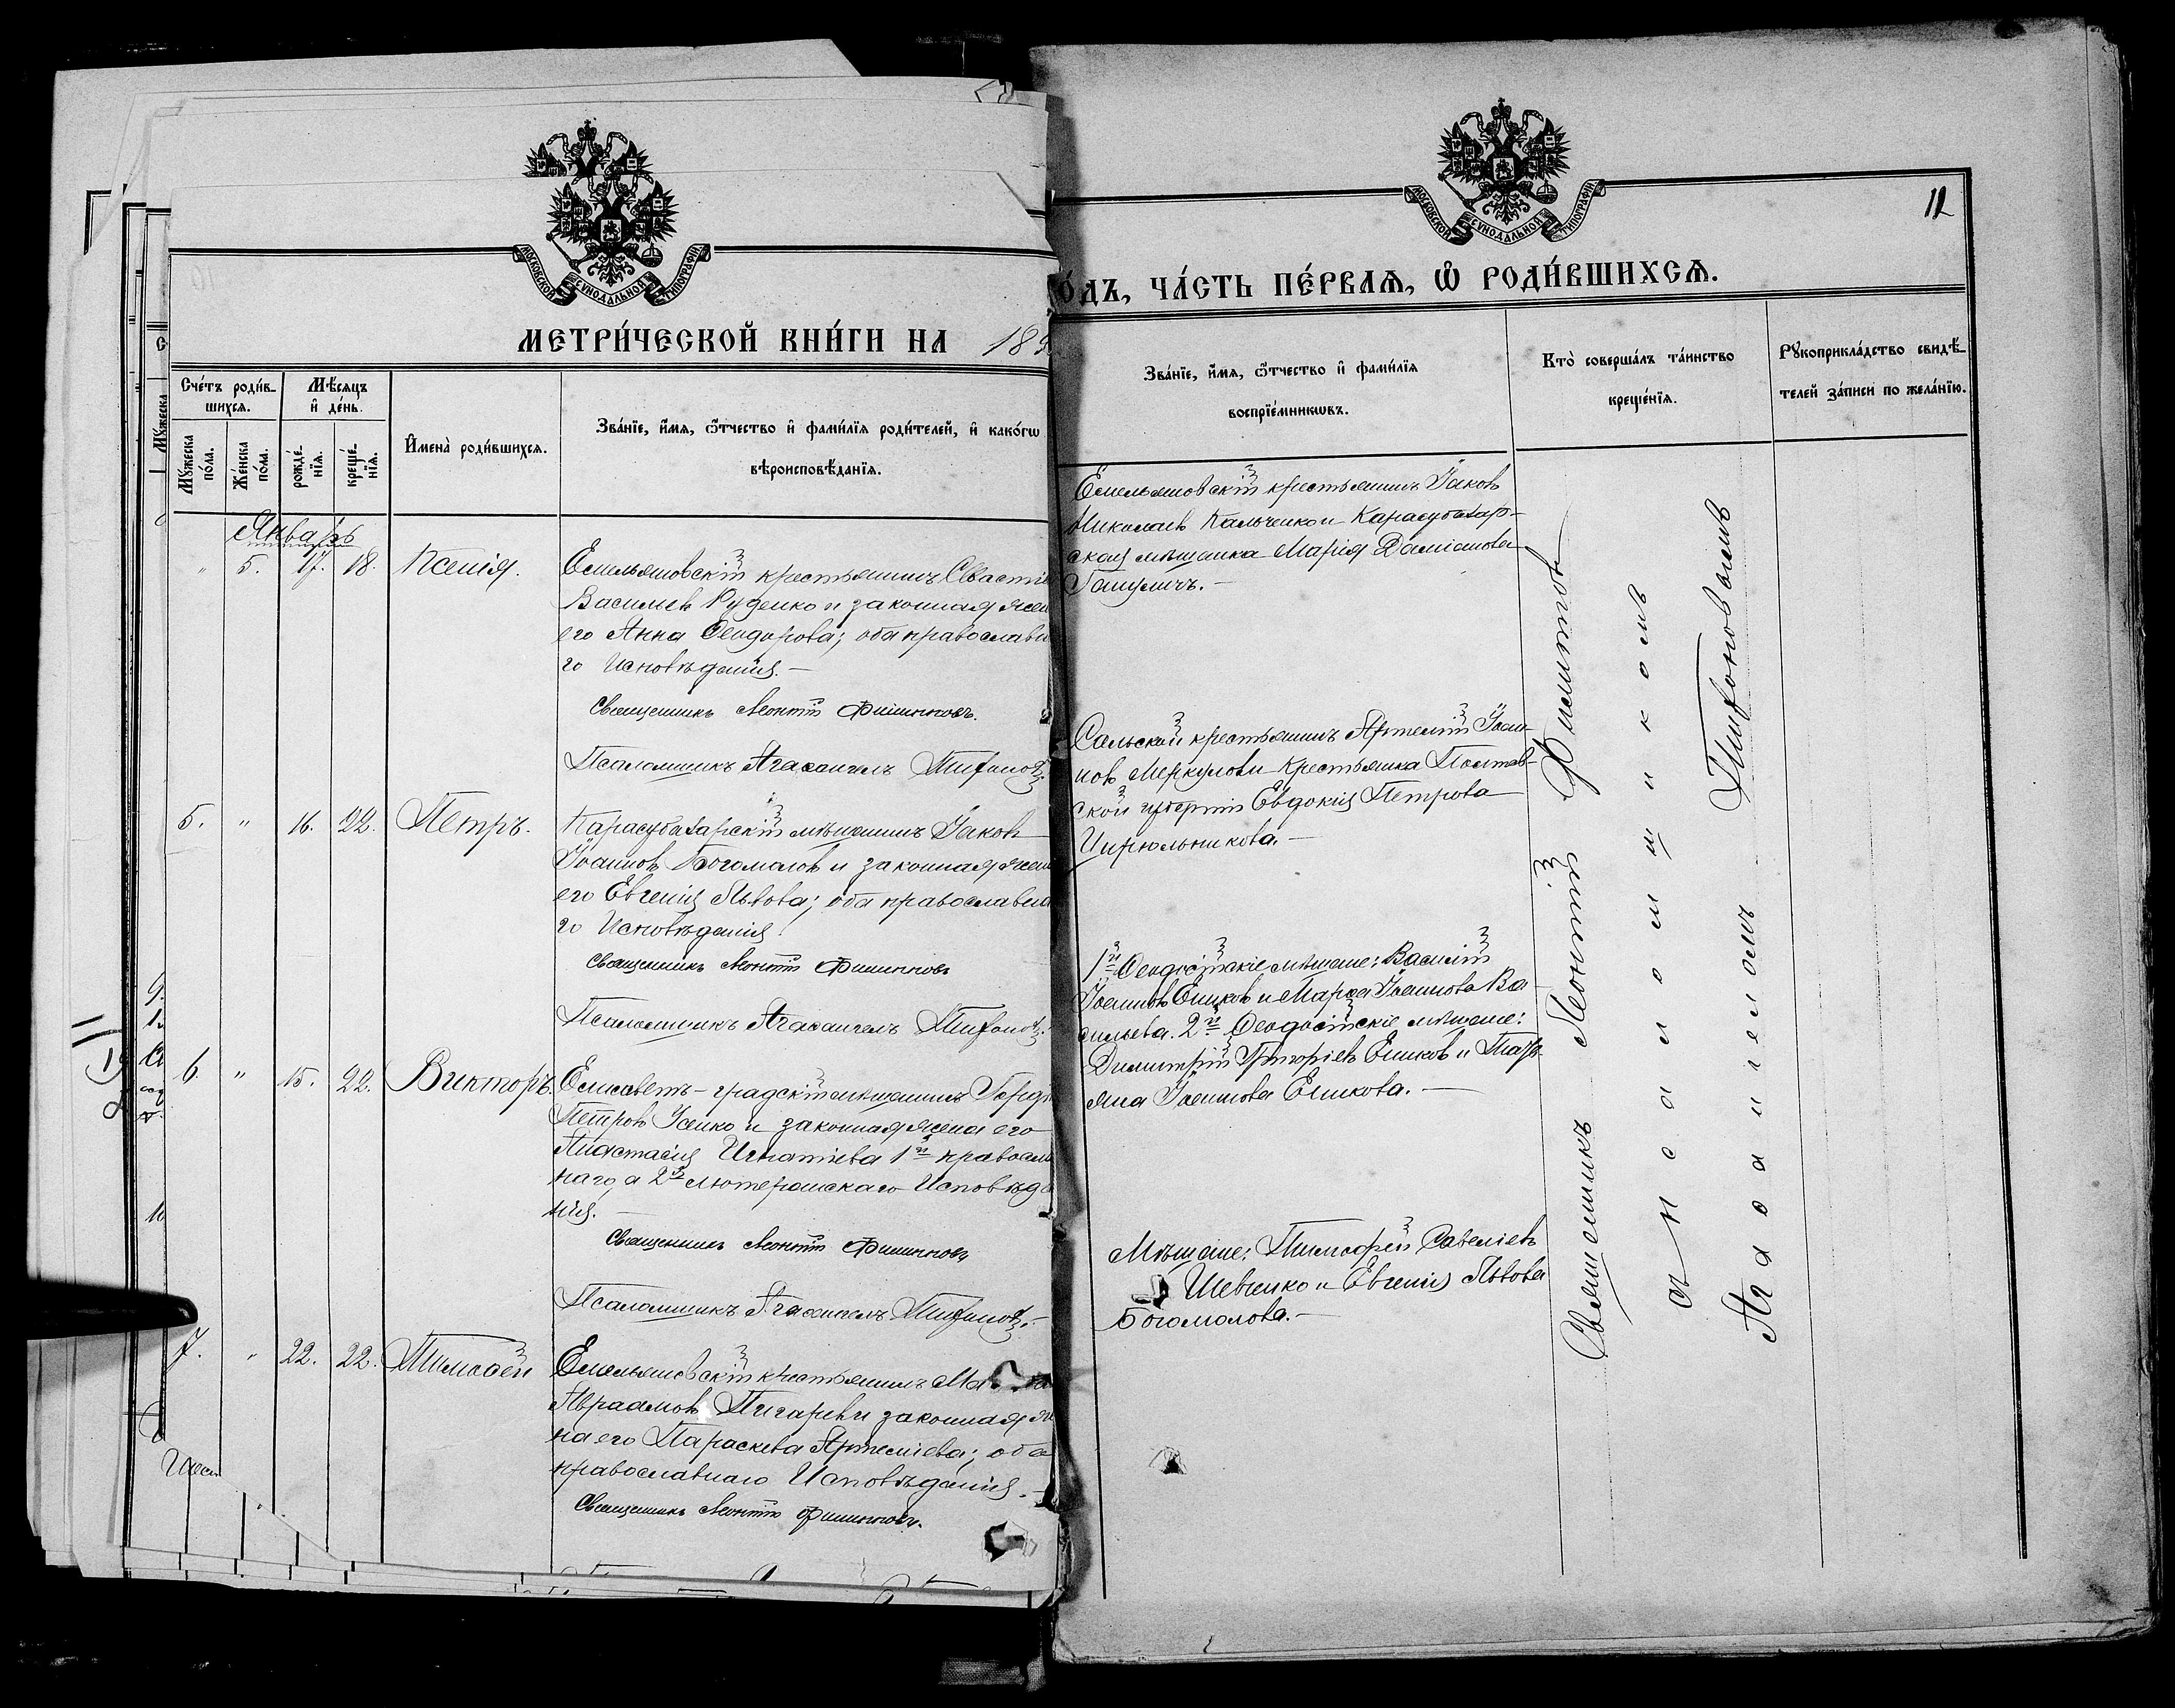 МОСКОВСКОЙ СУНОДАЛЬНОЙ ТИПОГРАФІИ
МЕТРИ́ЧЕСКОЙ КНИ́ГИ НА 189
Сче́тъ роди́в-
шихсѧ.
Мѣ́сѧцъ
и҆ де́нь.
Мꙋ́жеска
по́ла.
Же́нска
по́ла.
рожде́-
нїѧ.
креще́-
нїѧ.
И҆мена̀ роди́вшихсѧ.
Зва́нїе, и҆́мѧ, ѻ҆́тчество и҆ фами́лїѧ роди́телей, и҆ како́гѡ
вѣроисповѣ́данїѧ.
Январь
" 5. 17. 18. Ксенія.
Емельяновскій крестьянинъ Севасті
Васильев Руденко и законная жен
его Анна Феодорова; оба православн
го Исповѣданія.—
Священникъ Леонтій Филипповъ.
Псаломщикъ Агаѳангелъ
5. " 16. 22. Петръ.
Карасубазарскій мѣщанинъ Іаков
Іоаннов Богомолов и законная жен
его Евгенія Львова; оба православна
го Исповѣданія.
Священникъ Леонтій Филипповъ
Псаломщикъ Агаѳангелъ
6. " 15. 22. Викторъ.
Елисавет-градскій мѣщанинъ Горд
Петров Усенко и законная жена его
Анастасія Игнатіева 1й правосл
наго, а 2я лютеранскаго Исповѣда
нія.—
Священникъ Леонтій Филипповъ
Псаломщикъ Агаѳангелъ
7. " 22. 22. Тимоѳей
Емельяновскій крестьянинъ
Авраамов Пигарев и законная же
на его Параскева Артеміева; оба
православнаго Исповѣданія.—
Священникъ Леонтій Филипповъ.
МОСКОВСКОЙ СУНОДАЛЬНОЙ ТИПОГРАФІИ
О́ДЪ, ЧА́СТЬ ПЕ́РВАѦ, Ѽ РОДИ́ВШИХСѦ.
Зва́нїе, и҆́мѧ, ѻ҆́тчество и҆ фами́лїѧ
воспрїе́мникѡвъ.
Кто̀ соверша́лъ та́инство
креще́нїѧ.
Рꙋкоприкла́дство свидѣ́-
телей за́писи по жела́нїю.
Емельяновскій крестьянинъ Іаков
Николаев Кальченко и Карасубазар-
ская мѣщанка Марія Даміанова
Сальской крестьянинъ Артемій Іоан-
нов Меркулов и крестьянка Полтав-
ской губерніи Евдокія Петрова
Цирюльникова.—
1й Феодосійскіе мѣщане: Василій
Іоаннов Ешков и Марѳа Іоаннова Ва-
сильева. 2й Феодосійскіе мѣщане:
Димитрій Григоріев Ешков и Тать-
яна Іоаннова Ешкова.—
Мѣщане: Тимоѳей Савеліев
Шевченко и Евгенія Львова
Богомолова.—
Священникъ Леонтій Филиппов
съ псаломщикомъ
Агаѳангеломъ